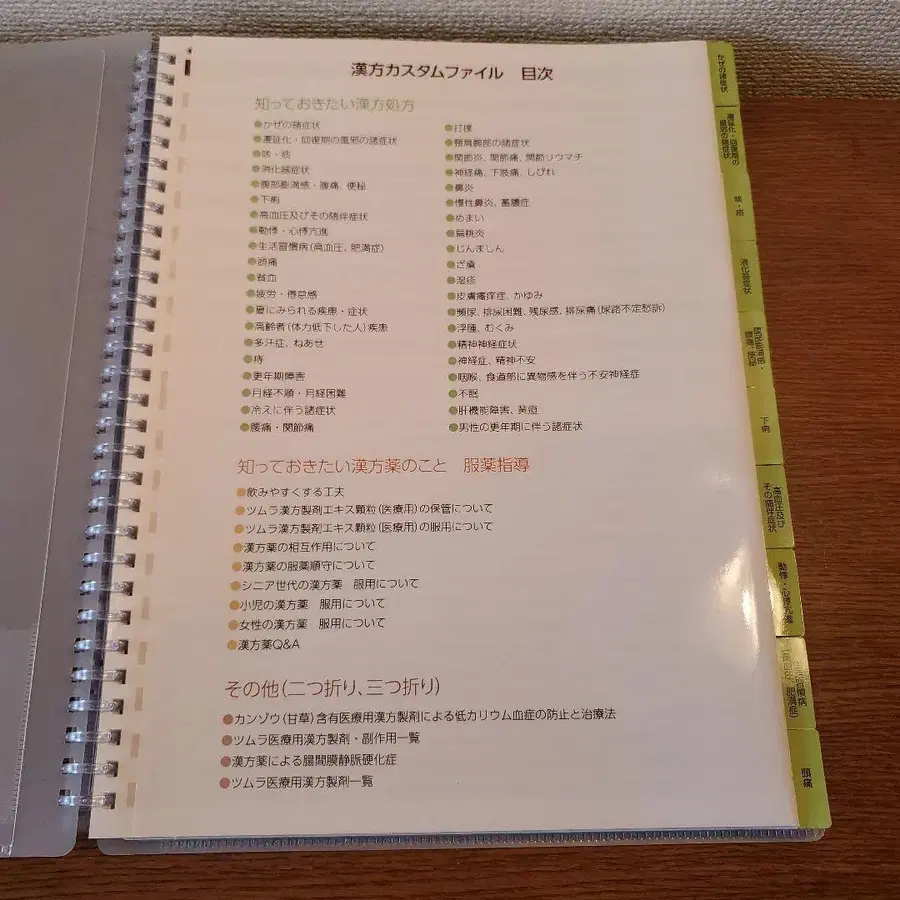 漢方カスタムファイル 目次
知っておきたい漢方処方
●かぜの諸症状
●遷延化・回復期の風邪の諸症状
●咳・痰
●消化器症状
●腹部膨満感・腹痛、便秘
●下痢
●高血圧及びその随伴症状
●動悸・心悸亢進
●生活習慣病(高血圧、肥満症)
●頭痛
●貧血
●疲労・倦怠感
●夏にみられる疾患・症状
●高齢者(体力低下した人)疾患
●多汗症、ねあせ
●痔
●更年期障害
●月経不順・月経困難
●冷えに伴う諸症状
●腰痛・関節痛
●打撲
●頸肩腕部の諸症状
●関節炎、関節痛、関節リウマチ
●神経痛、下肢痛、しびれ
●鼻炎
●慢性鼻炎、蓄膿症
●めまい
●扁桃炎
●じんましん
●ざ瘡
●湿疹
●皮膚瘙痒症、かゆみ
●頻尿、排尿困難、残尿感、排尿痛(尿路不定愁訴)
●浮腫、むくみ
●精神神経症状
●神経症、精神不安
●咽喉、食道部に異物感を伴う不安神経症
●不眠
●肝機能障害、黄疸
●男性の更年期に伴う諸症状
知っておきたい漢方薬のこと 服薬指導
●飲みやすくする工夫
●ツムラ漢方製剤エキス顆粒(医療用)の保管について
●ツムラ漢方製剤エキス顆粒(医療用)の服用について
●漢方薬の相互作用について
●漢方薬の服薬順守について
●シニア世代の漢方薬 服用について
●小児の漢方薬 服用について
●女性の漢方薬 服用について
●漢方薬Q&A
その他(二つ折り、三つ折り)
●カンゾウ(甘草)含有医療用漢方製剤による低カリウム血症の防止と治療法
●ツムラ医療用漢方製剤・副作用一覧
●漢方薬による腸間膜静脈硬化症
●ツムラ医療用漢方製剤一覧
かぜの諸症状
遷延化・回復期の
風邪の諸症状
咳・痰
消化器症状
腹部膨満感・
腹痛、便秘
下痢
高血圧及び
その随伴症状
動悸・心悸亢進
生活習慣病
(高血圧、肥満症)
頭痛